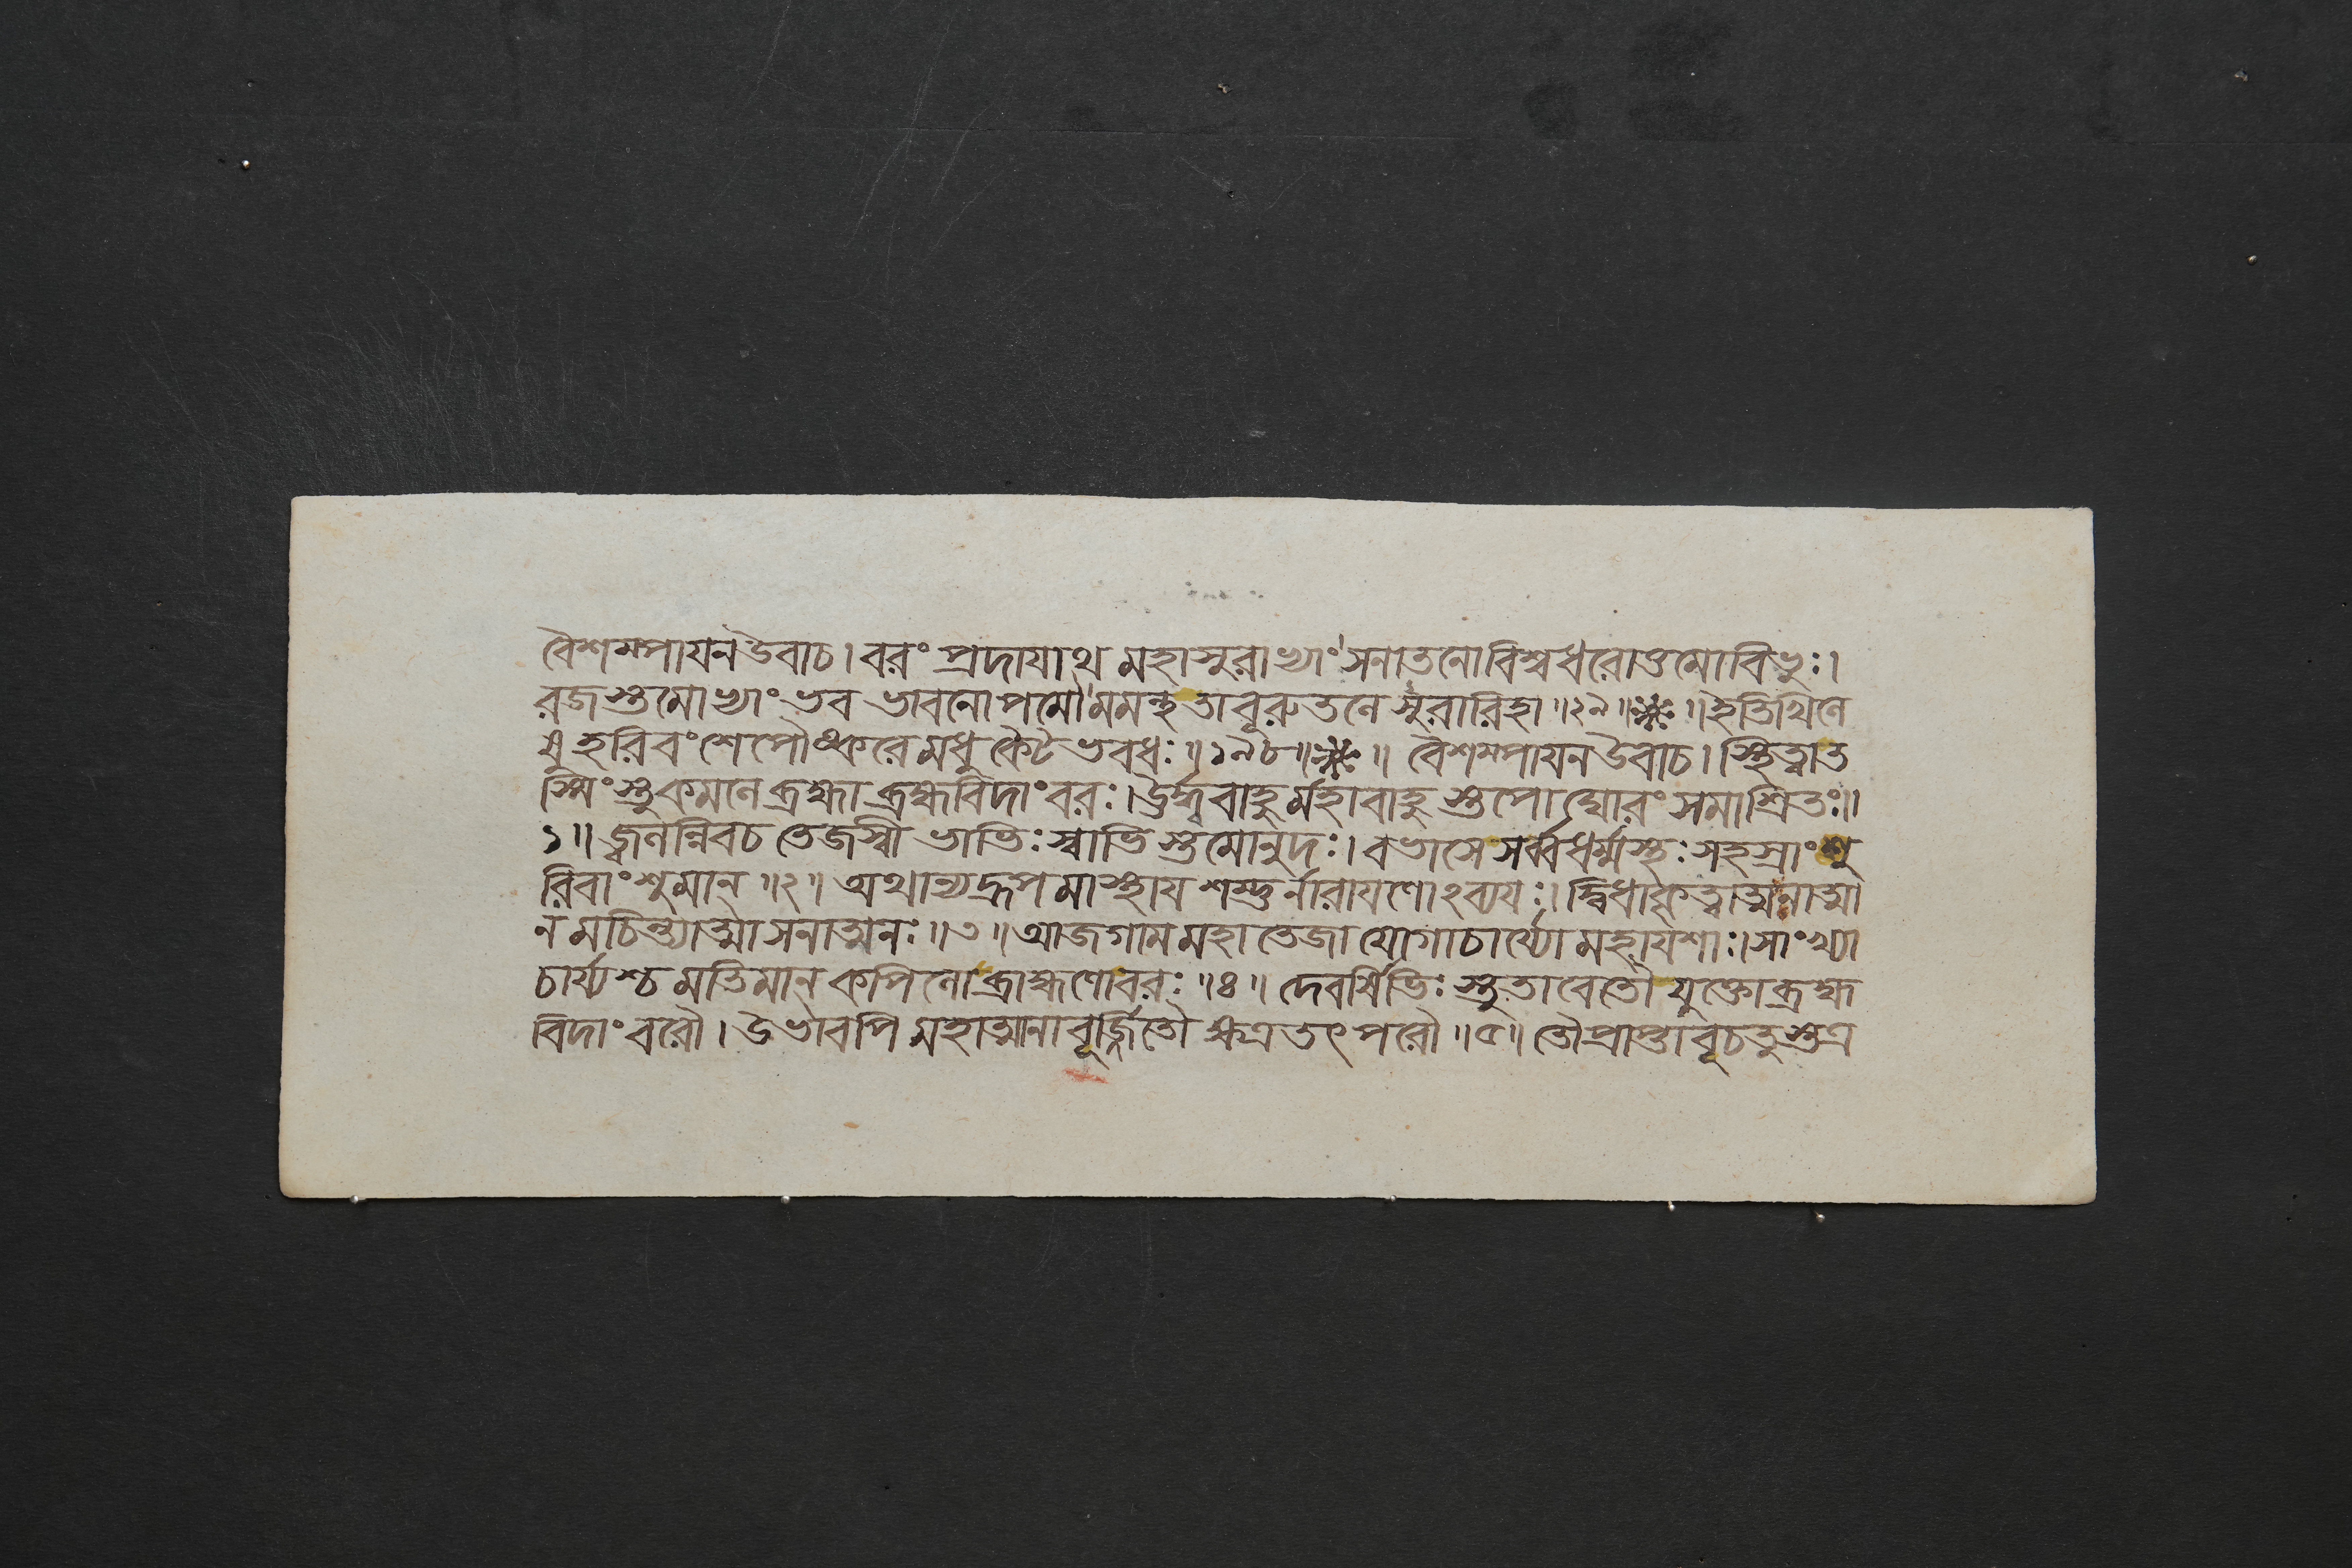 বৈশম্পায়ন উবাচ। বরং প্রদায়াথ মহাসুরাভ্যাং সনাতনো বিশ্বধরোত্তমো বিভুঃ।
রজস্তমোভ্যাং ভব ভাবনোপমৌ মমন্থ তাবূরুতলে সুরারিহা ॥২৯॥ ॥ ইতি খিলে
ষু হরিবংশে পৌষ্করে মধুকৈটভবধঃ ॥১৯৮॥ ॥ বৈশম্পায়ন উবাচ। স্থিত্বা ত
স্মিংস্তু কমলে ব্রহ্মা ব্রহ্মবিদাং বরঃ। ঊর্দ্ধ্ববাহুর্মহাবাহুস্তপো ঘোরং সমাশ্রিতঃ॥
১॥ জ্বলন্নিব চ তেজস্বী ভাভিঃ স্বাভিস্তমোনুদঃ। বভাসে সর্ব্বধর্ম্মস্থঃ সহস্রাংশু
রিবাংশুমান্ ॥২॥ অথান্যদ্রূপমাস্থায় শম্ভুর্নারায়ণোঽব্যয়ঃ। দ্বিধা কৃত্বাত্মনাত্মা
নমচিন্ত্যাত্মা সনাতনঃ ॥৩॥ আজগাম মহাতেজা যোগাচার্য্যো মহাযশাঃ। সাংখ্যা
চার্য্যশ্চ মতিমান্ কপিলো ব্রাহ্মণো বরঃ ॥৪॥ দেবর্ষিভিঃ স্তুতাবেতৌ যুক্তো ব্রহ্ম
বিদাং বরৌ। উভাবপি মহাত্মানাবূর্জ্জিতৌ ক্ষত্রতৎপরৌ ॥৫॥ তৌ প্রাপ্তাবূচতুস্তত্র